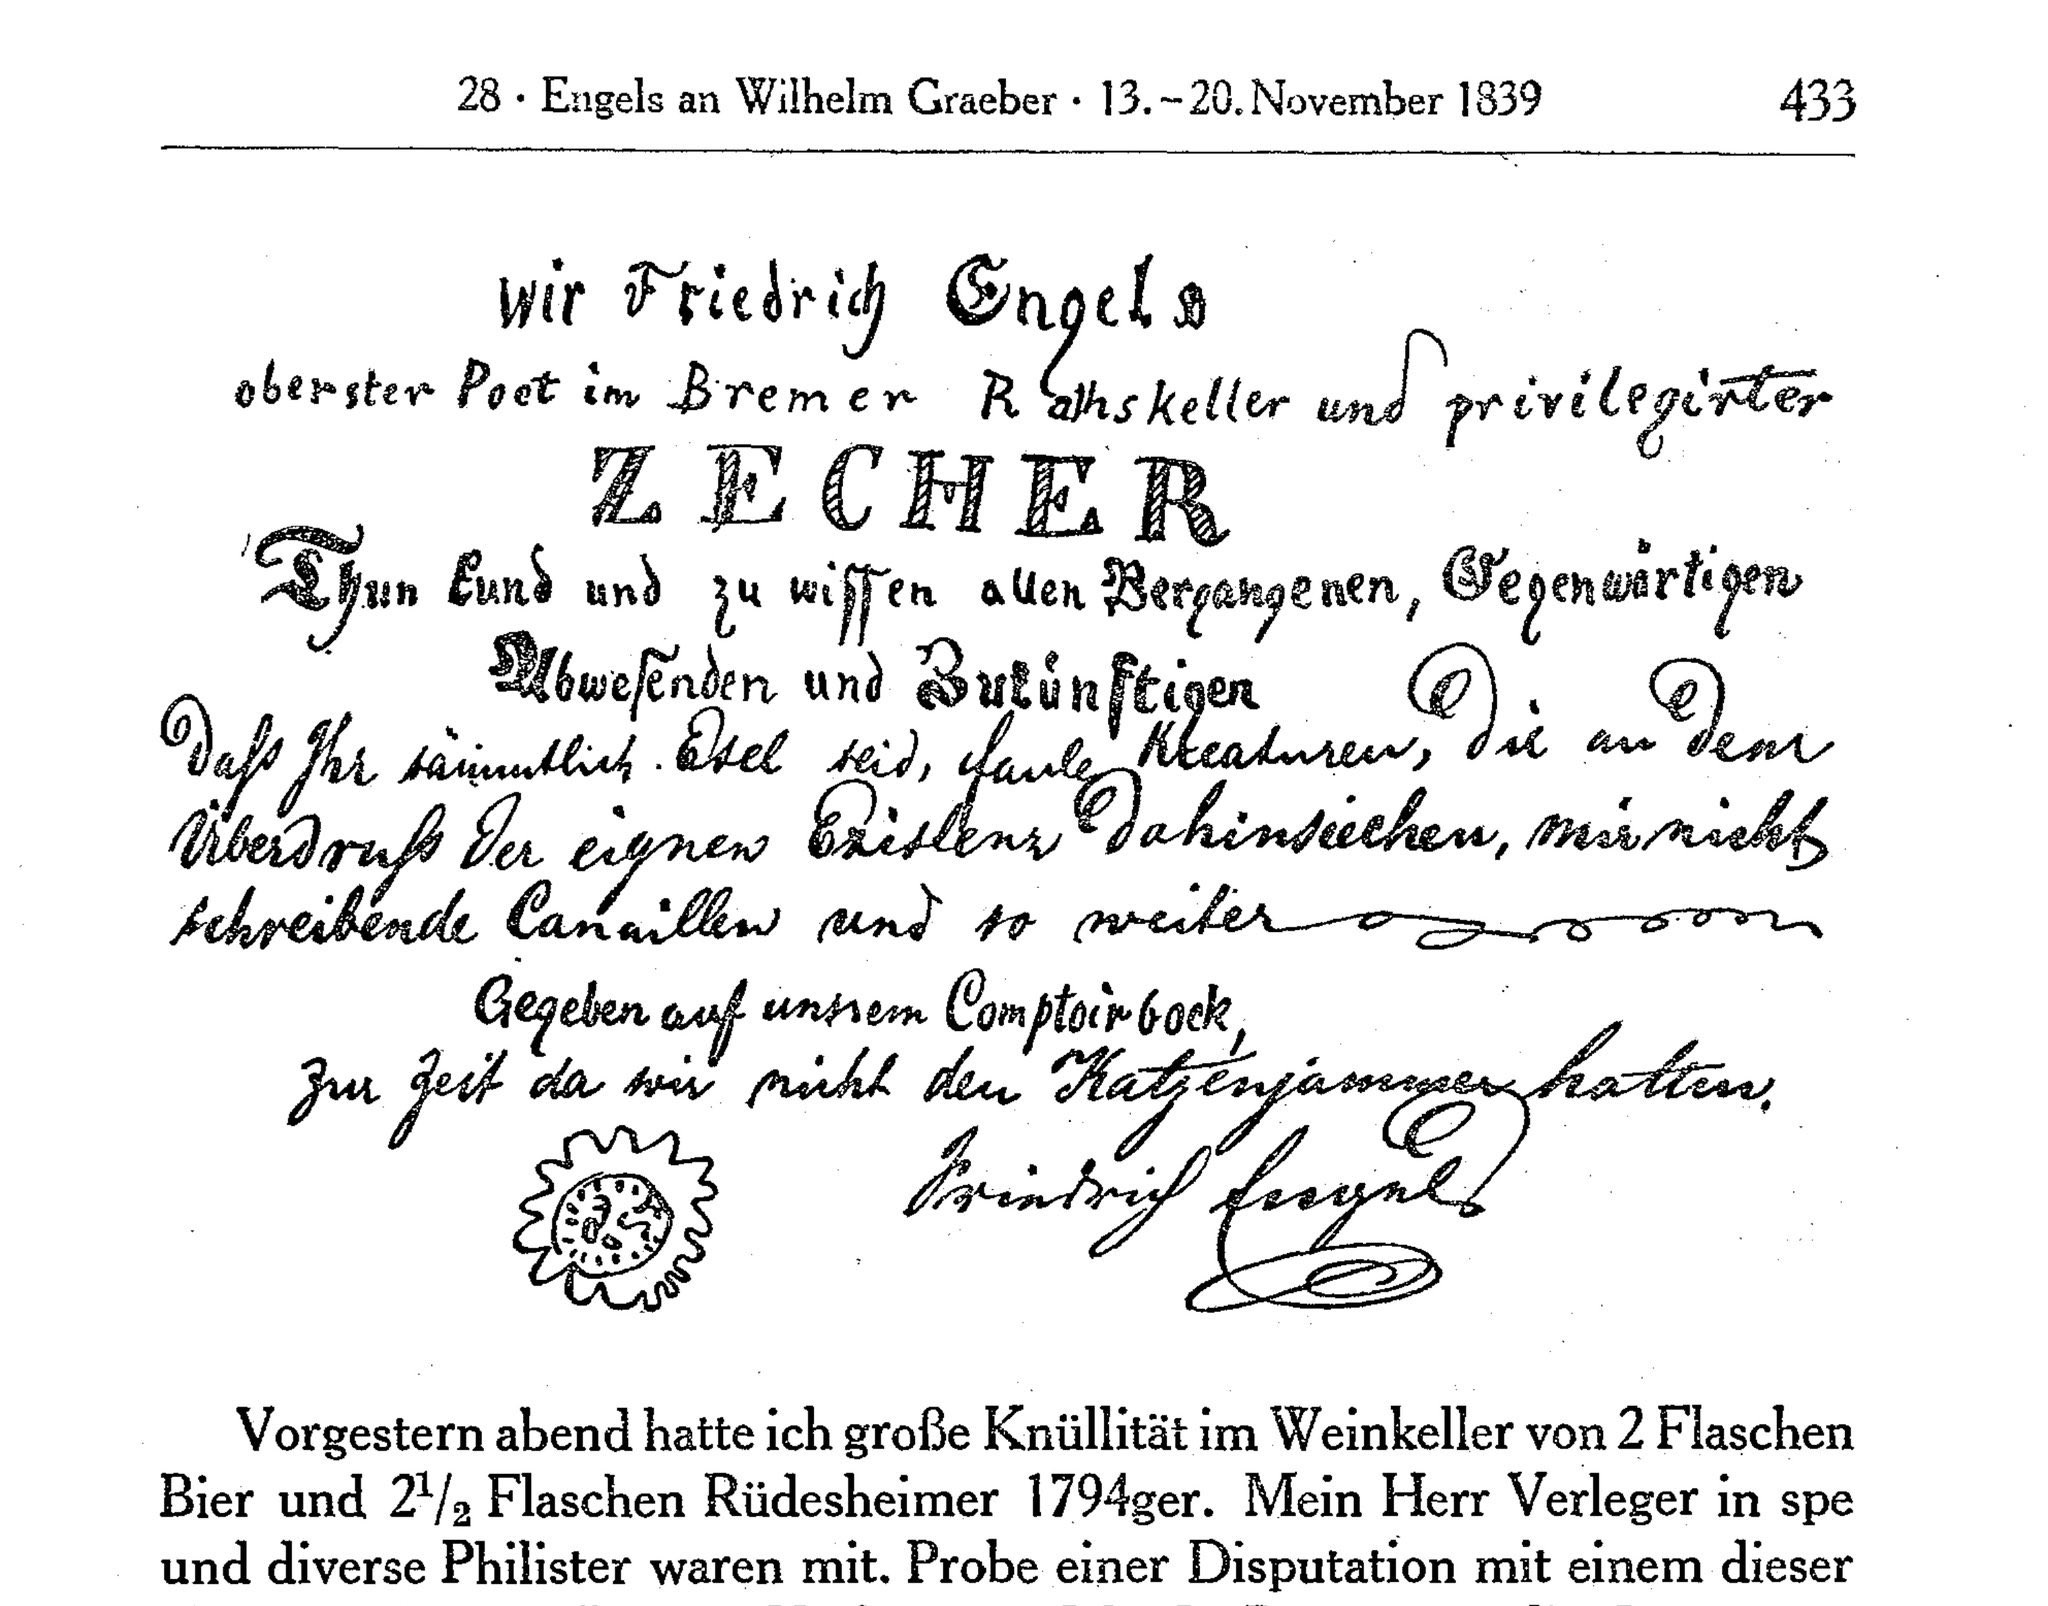 28 · Engels an Wilhelm Graeber · 13.–20. November 1839 433
Wir Friedrich Engels
oberster Poet im Bremer Rathskeller und privilegirter
ZECHER
Thun kund und zu wissen allen Vergangenen, Gegenwärtigen
Abwesenden und Zukünftigen
Daß Ihr sämmtlich Esel seid, faule Kreaturen, die an dem
Überdruß der eignen Existenz dahinsiechen, mir nicht
schreibende Canaillen und so weiter
Gegeben auf unsrem Comptoirbock,
zur Zeit da wir nicht den Katzenjammer hatten.
Friedrich Engels
Vorgestern abend hatte ich große Knüllität im Weinkeller von 2 Flaschen
Bier und 2¹/₂ Flaschen Rüdesheimer 1794ger. Mein Herr Verleger in spe
und diverse Philister waren mit. Probe einer Disputation mit einem dieser